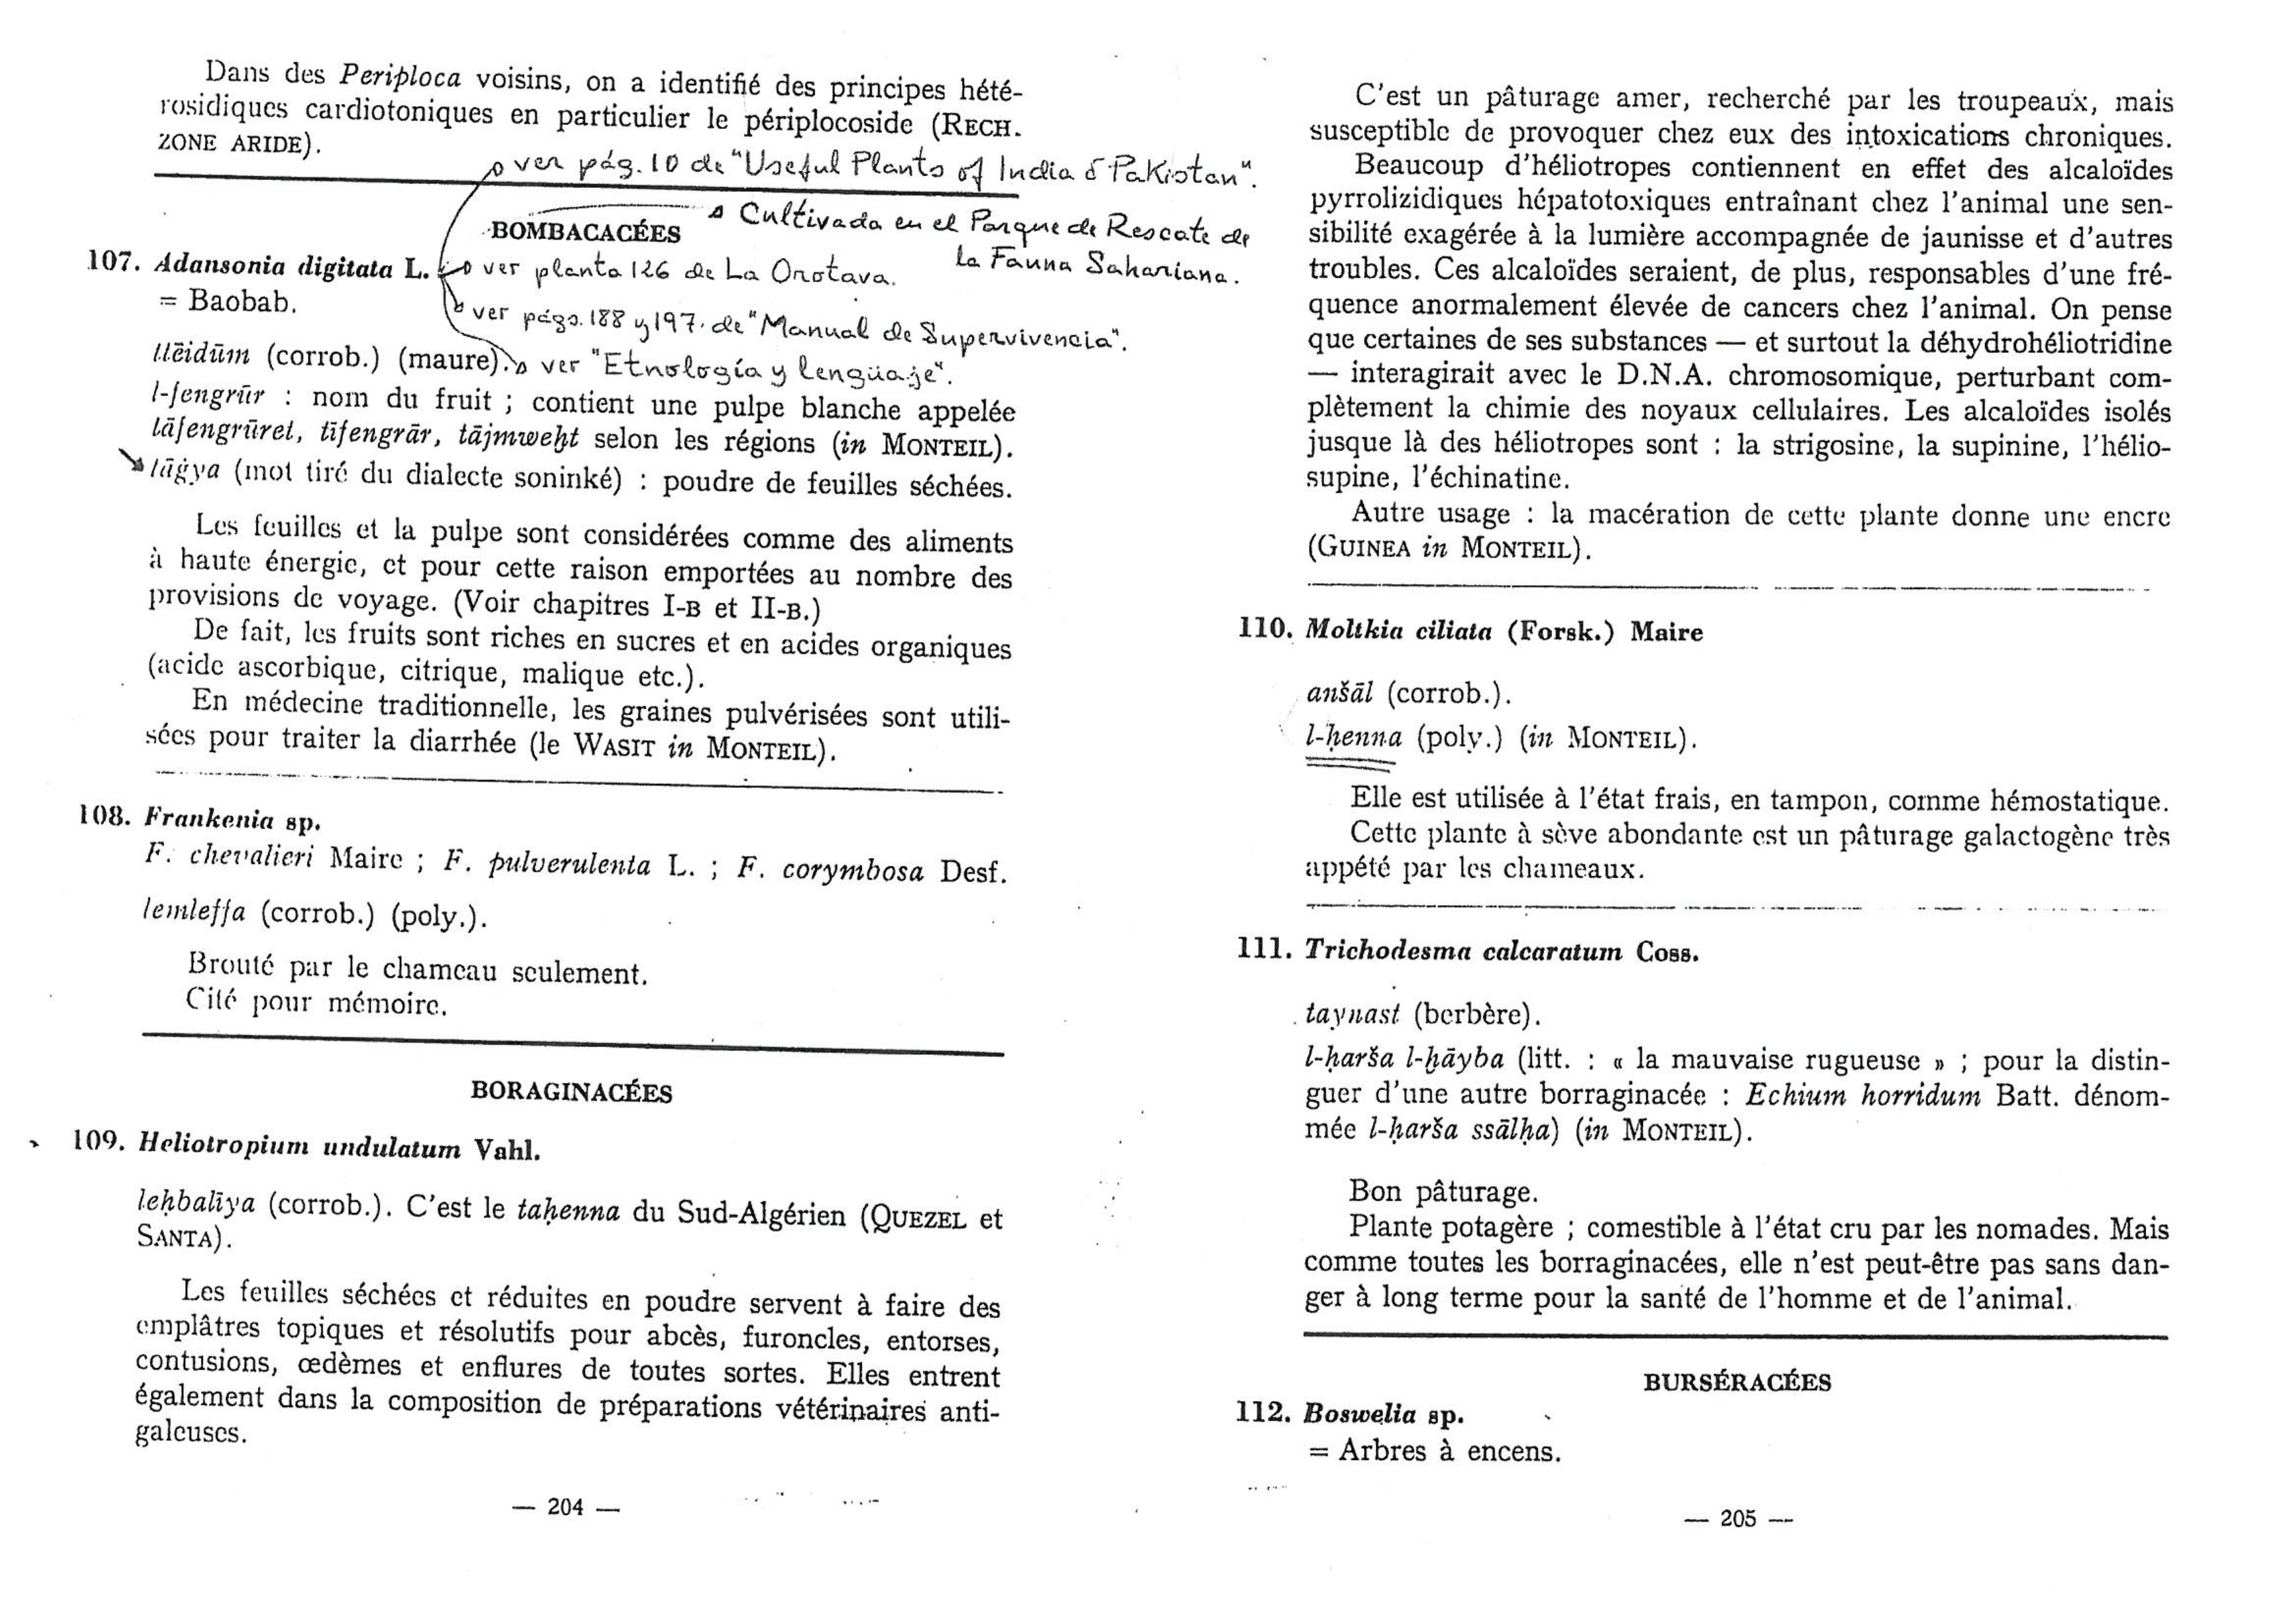 Dans des Periploca voisins, on a identifié des principes hété-
rosidiques cardiotoniques en particulier le périplocoside (RECH.
ZONE ARIDE).
ver pág. 10 de "Useful Plants of India & Pakistan".
BOMBACACÉES
Cultivada en el Parque de Rescate de
la Fauna Sahariana.
107. Adansonia digitata L.
ver planta 126 de La Orotava.
= Baobab.
ver págs. 188 y 197. de "Manual de Supervivencia".
ṭṭēidūm (corrob.) (maure).
ver "Etnología y lengüaje".
l-fengrūr : nom du fruit ; contient une pulpe blanche appelée
tāfengrūret, tīfengrār, tājmweḫt selon les régions (in MONTEIL).
tāġya (mot tiré du dialecte soninké) : poudre de feuilles séchées.
Les feuilles et la pulpe sont considérées comme des aliments
à haute énergie, et pour cette raison emportées au nombre des
provisions de voyage. (Voir chapitres I-B et II-B.)
De fait, les fruits sont riches en sucres et en acides organiques
(acide ascorbique, citrique, malique etc.).
En médecine traditionnelle, les graines pulvérisées sont utili-
sées pour traiter la diarrhée (le WASIT in MONTEIL).
108. Frankenia sp.
F. chevalieri Maire ; F. pulverulenta L. ; F. corymbosa Desf.
lemleffa (corrob.) (poly.).
Brouté par le chameau seulement.
Cité pour mémoire.
BORAGINACÉES
109. Heliotropium undulatum Vahl.
leḥbalīya (corrob.). C'est le taḥenna du Sud-Algérien (QUEZEL et
SANTA).
Les feuilles séchées et réduites en poudre servent à faire des
emplâtres topiques et résolutifs pour abcès, furoncles, entorses,
contusions, œdèmes et enflures de toutes sortes. Elles entrent
également dans la composition de préparations vétérinaires anti-
galeuses.
— 204 —
C'est un pâturage amer, recherché par les troupeaux, mais
susceptible de provoquer chez eux des intoxications chroniques.
Beaucoup d'héliotropes contiennent en effet des alcaloïdes
pyrrolizidiques hépatotoxiques entraînant chez l'animal une sen-
sibilité exagérée à la lumière accompagnée de jaunisse et d'autres
troubles. Ces alcaloïdes seraient, de plus, responsables d'une fré-
quence anormalement élevée de cancers chez l'animal. On pense
que certaines de ses substances — et surtout la déhydrohéliotridine
— interagirait avec le D.N.A. chromosomique, perturbant com-
plètement la chimie des noyaux cellulaires. Les alcaloïdes isolés
jusque là des héliotropes sont : la strigosine, la supinine, l'hélio-
supine, l'échinatine.
Autre usage : la macération de cette plante donne une encre
(GUINEA in MONTEIL).
110. Moltkia ciliata (Forsk.) Maire
anšāl (corrob.).
l-ḥenna (poly.) (in MONTEIL).
Elle est utilisée à l'état frais, en tampon, comme hémostatique.
Cette plante à sève abondante est un pâturage galactogène très
appété par les chameaux.
111. Trichodesma calcaratum Coss.
taynast (berbère).
l-ḥarša l-ḫāyba (litt. : « la mauvaise rugueuse » ; pour la distin-
guer d'une autre borraginacée : Echium horridum Batt. dénom-
mée l-ḥarša ssālḥa) (in MONTEIL).
Bon pâturage.
Plante potagère ; comestible à l'état cru par les nomades. Mais
comme toutes les borraginacées, elle n'est peut-être pas sans dan-
ger à long terme pour la santé de l'homme et de l'animal.
BURSÉRACÉES
112. Boswelia sp.
= Arbres à encens.
— 205 —